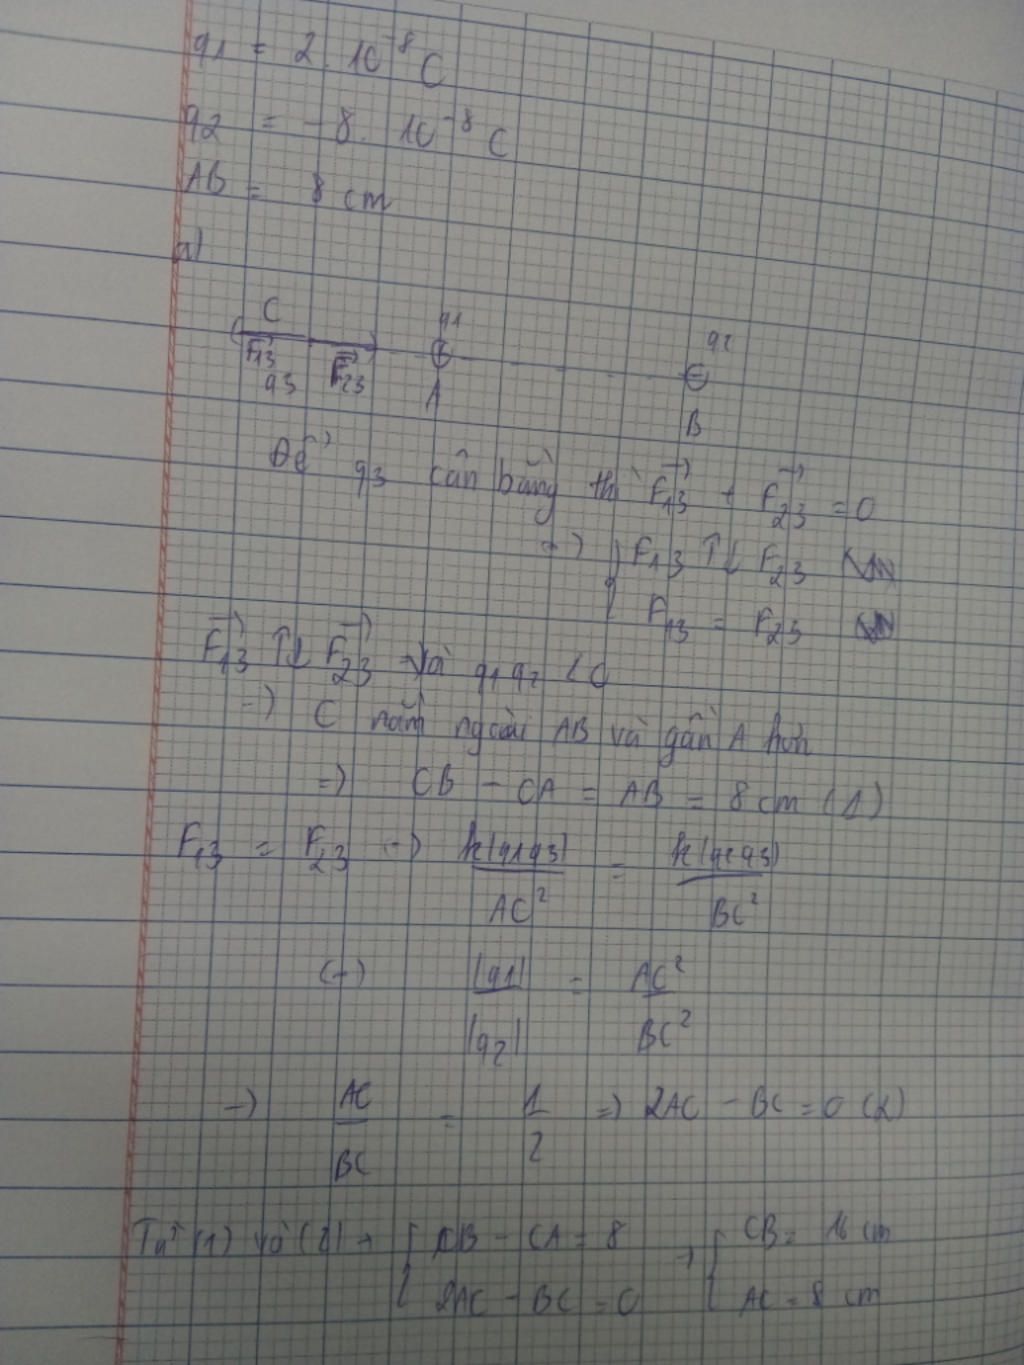 q1 = 2.10⁻⁸ C
q2 = -8.10⁻⁸ C
AB = 8 cm
a)
C q1 q2
F13 F23
q3 A B
Để q3 cân bằng thì F13 + F23 = 0
=> { F13 ↑↓ F23
F13 = F23
F13 ↑↓ F23 và q1q2 < 0
-> C nằm ngoài AB và gần A hơn
=> CB - CA = AB = 8 cm (1)
F13 = F23 -> k|q1q3| / AC² = k|q2q3| / BC²
(-) |q1| / |q2| = AC² / BC²
-> AC / BC = 1 / 2 => 2AC - BC = 0 (2)
Từ (1) và (2) -> { CB - CA = 8 -> { CB = 16 cm
2AC - BC = 0 AC = 8 cm